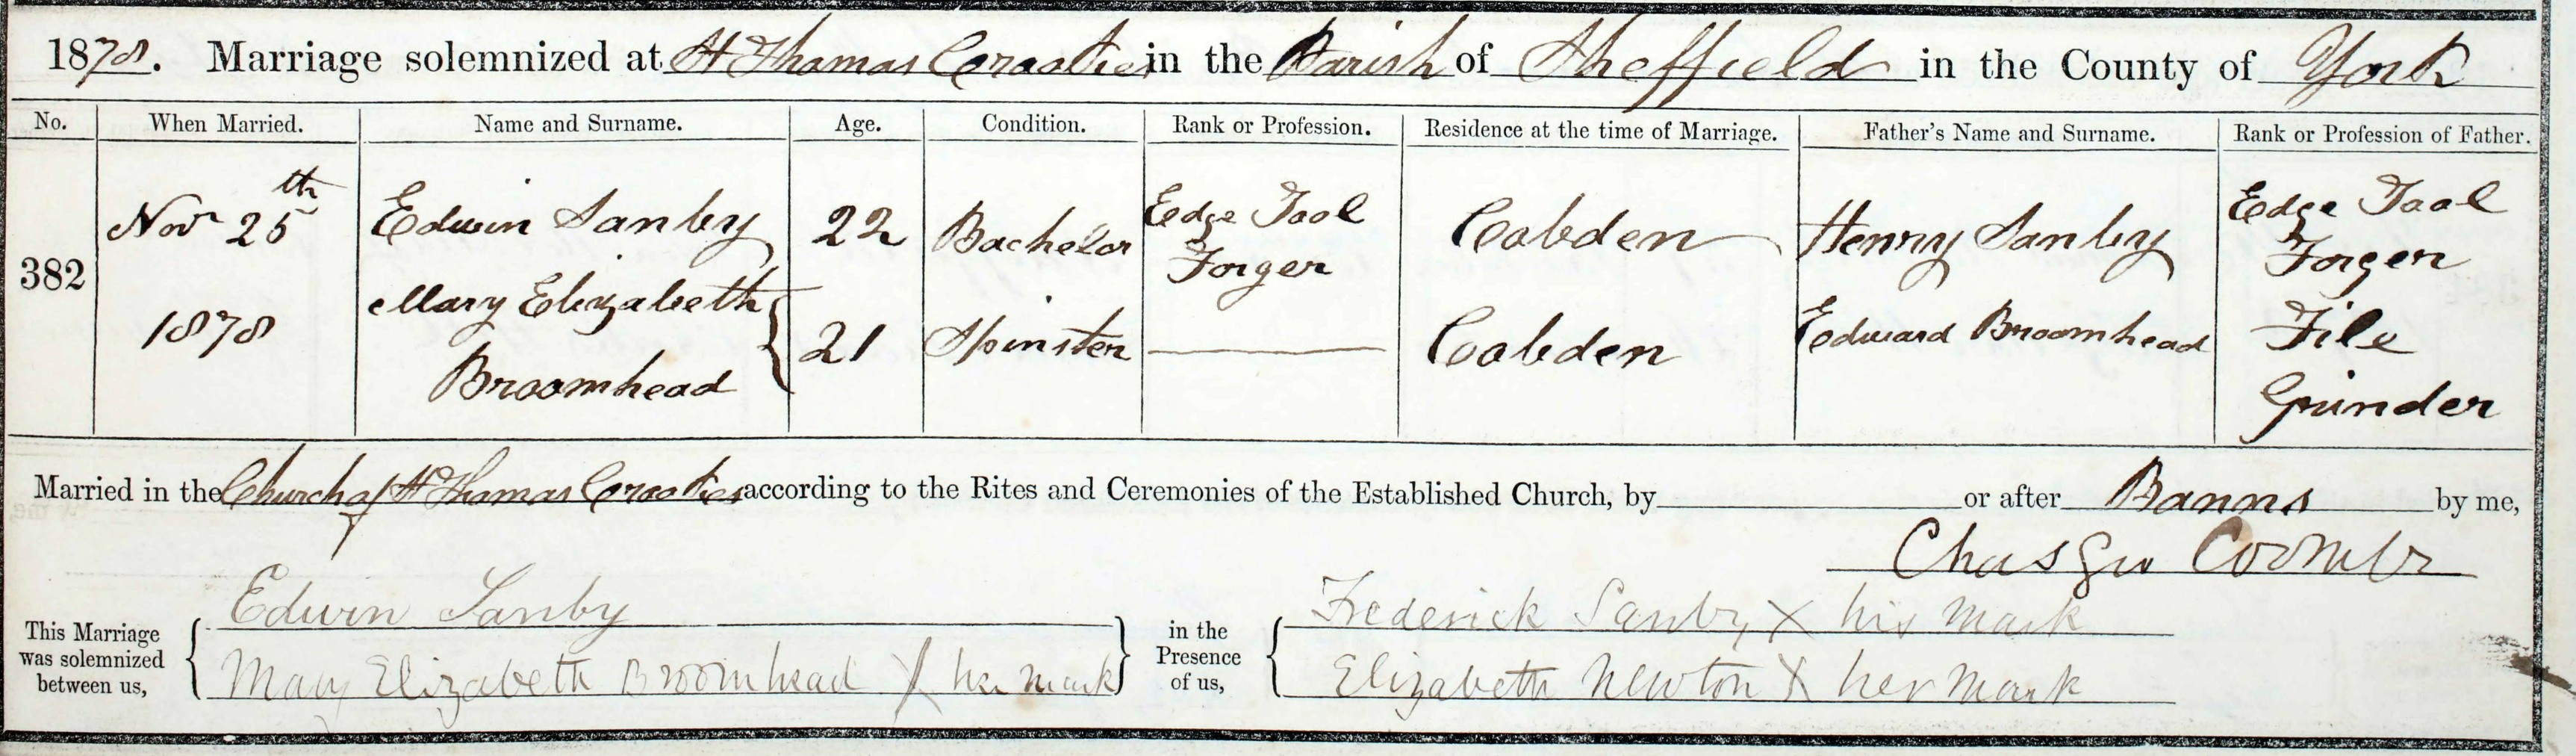 1878. Marriage solemnized at St Thomas Crookes in the Parish of Sheffield in the County of York
No. When Married. Name and Surname. Age. Condition. Rank or Profession. Residence at the time of Marriage. Father's Name and Surname. Rank or Profession of Father.
382 Nov 25th 1878
Edwin Sanby 22 Bachelor Edge Tool Forger Cobden Henry Sanby Edge Tool Forger
Mary Elizabeth Broomhead 21 Spinster Cobden Edward Broomhead File Grinder
Married in the Church of St Thomas Crookes according to the Rites and Ceremonies of the Established Church, by or after Banns by me,
Chas Coombe
This Marriage was solemnized between us,
Edwin Sanby
Mary Elizabeth Broomhead X her mark
in the Presence of us,
Frederick Sanby X his mark
Elizabeth Newton X her mark